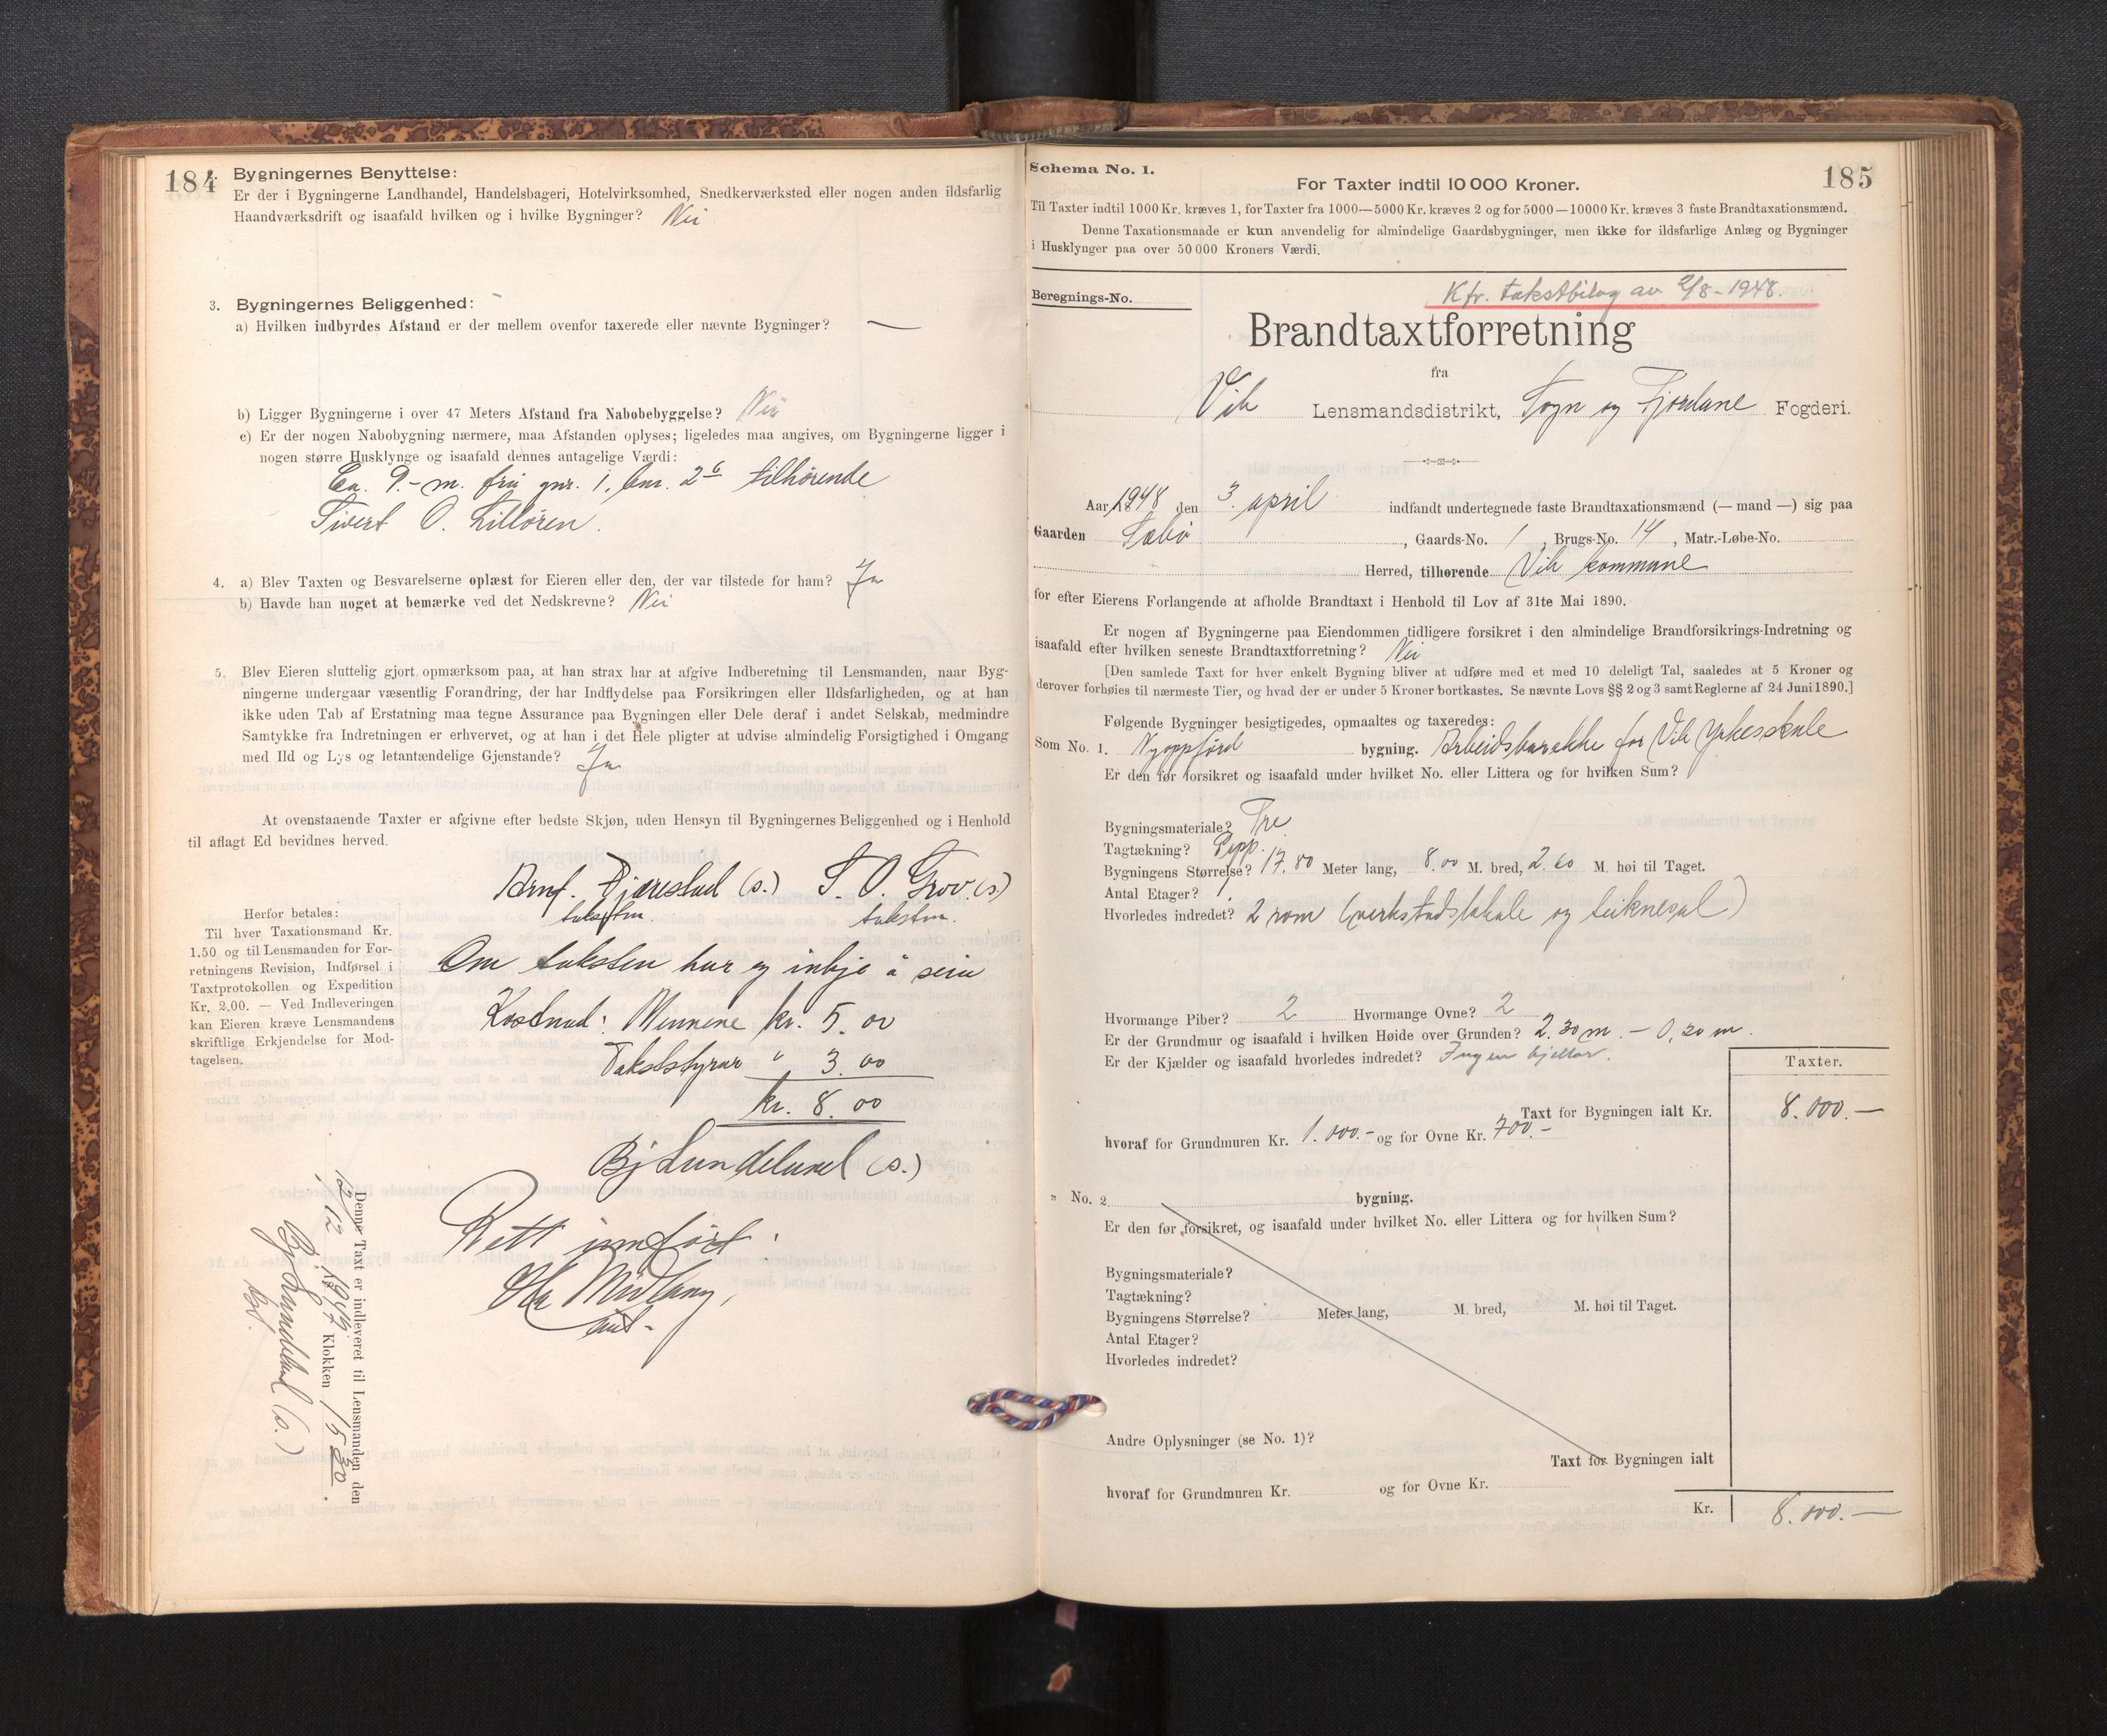 184
2. Bygningernes Benyttelse:
Er der i Bygningerne Landhandel, Handelsbageri, Hotelvirksomhed, Snedkerværksted eller nogen anden ildsfarlig
Haandværksdrift og isaafald hvilken og i hvilke Bygninger? Nei
3. Bygningernes Beliggenhed:
a) Hvilken indbyrdes Afstand er der mellem ovenfor taxerede eller nævnte Bygninger? —
b) Ligger Bygningerne i over 47 Meters Afstand fra Nabobebyggelse? Nei
c) Er der nogen Nabobygning nærmere, maa Afstanden oplyses; ligeledes maa angives, om Bygningerne ligger i
nogen større Husklynge og isaafald dennes antagelige Værdi:
Ca. 9.- m. frå gnr. 1, bnr. 26 tilhørende
Sivert O. Lilløren.
4. a) Blev Taxten og Besvarelserne oplæst for Eieren eller den, der var tilstede for ham? Ja
b) Havde han noget at bemærke ved det Nedskrevne? Nei
5. Blev Eieren sluttelig gjort opmærksom paa, at han strax har at afgive Indberetning til Lensmanden, naar Byg-
ningerne undergaar væsentlig Forandring, der har Indflydelse paa Forsikringen eller Ildsfarligheden, og at han
ikke uden Tab af Erstatning maa tegne Assurance paa Bygningen eller Dele deraf i andet Selskab, medmindre
Samtykke fra Indretningen er erhvervet, og at han i det Hele pligter at udvise almindelig Forsigtighed i Omgang
med Ild og Lys og letantændelige Gjenstande? Ja
At ovenstaaende Taxter er afgivne efter bedste Skjøn, uden Hensyn til Bygningernes Beliggenhed og i Henhold
til aflagt Ed bevidnes herved.
Arnf. (s.) S. O. Grov. (s)
takstm. takstm.
Herfor betales:
Til hver Taxationsmand Kr.
1.50 og til Lensmanden for For-
retningens Revision, Indførsel i
Taxtprotokollen og Expedition
Kr. 2.00. — Ved Indleveringen
kan Eieren kræve Lensmandens
skriftlige Erkjendelse for Mod-
tagelsen.
Om taksten har eg inkje å seia
Kostnad: Mennene kr. 5.00
Takststyrar " 3.00
kr. 8.00
Bj Lundelund (s.)
Rett innført.
Denne Taxt er indleveret til Lensmanden den
12/12 1947 Klokken 15 30.
Bj Lundelund (s.)
185
Schema No. 1.
For Taxter indtil 10 000 Kroner.
Til Taxter indtil 1000 Kr. kræves 1, for Taxter fra 1000—5000 Kr. kræves 2 og for 5000—10000 Kr. kræves 3 faste Brandtaxationsmænd.
Denne Taxationsmaade er kun anvendelig for almindelige Gaardsbygninger, men ikke for ildsfarlige Anlæg og Bygninger
i Husklynger paa over 50 000 Kroners Værdi.
Beregnings-No.
Kfr. takstbilag av 2/8-1948.
Brandtaxtforretning
fra
Vik Lensmandsdistrikt, Sogn og Fjordane Fogderi.
Aar 1948 den 3. april indfandt undertegnede faste Brandtaxationsmænd (— mand —) sig paa
Gaarden Sæbø , Gaards-No. 1 , Brugs-No. 14 , Matr.-Løbe-No.
Herred, tilhørende Vik kommune
for efter Eierens Forlangende at afholde Brandtaxt i Henhold til Lov af 31te Mai 1890.
Er nogen af Bygningerne paa Eiendommen tidligere forsikret i den almindelige Brandforsikrings-Indretning og
isaafald efter hvilken seneste Brandtaxtforretning? Nei
[Den samlede Taxt for hver enkelt Bygning bliver at udføre med et med 10 deleligt Tal, saaledes at 5 Kroner og
derover forhøies til nærmeste Tier, og hvad der er under 5 Kroner bortkastes. Se nævnte Lovs §§ 2 og 3 samt Reglerne af 24 Juni 1890.]
Følgende Bygninger besigtigedes, opmaaltes og taxeredes:
Som No. 1. Nyoppførd bygning. Arbeidsbarakke for Vik Yrkesskule
Er den før forsikret og isaafald under hvilket No. eller Littera og for hvilken Sum?
Bygningsmateriale? Tre
Tagtækning? Papp.
Bygningens Størrelse? 17.80 Meter lang, 8.00 M. bred, 2.60 M. høi til Taget.
Antal Etager? 1
Hvorledes indredet? 2 rom (verkstadslokale og teiknesal)
Hvormange Piber? 2 Hvormange Ovne? 2
Er der Grundmur og isaafald i hvilken Høide over Grunden? 2.30 m. — 0,20 m.
Er der Kjælder og isaafald hvorledes indredet? Ingen kjellar.
Taxter.
Taxt for Bygningen ialt Kr. 8.000.—
hvoraf for Grundmuren Kr. 1.000.- og for Ovne Kr. 700.-
" No. 2 bygning.
Er den før forsikret, og isaafald under hvilket No. eller Littera og for hvilken Sum?
Bygningsmateriale?
Tagtækning?
Bygningens Størrelse? Meter lang, M. bred, M. høi til Taget.
Antal Etager?
Hvorledes indredet?
Andre Oplysninger (se No. 1)?
Taxt for Bygningen ialt
hvoraf for Grundmuren Kr. og for Ovne Kr.
Kr. 8.000.—